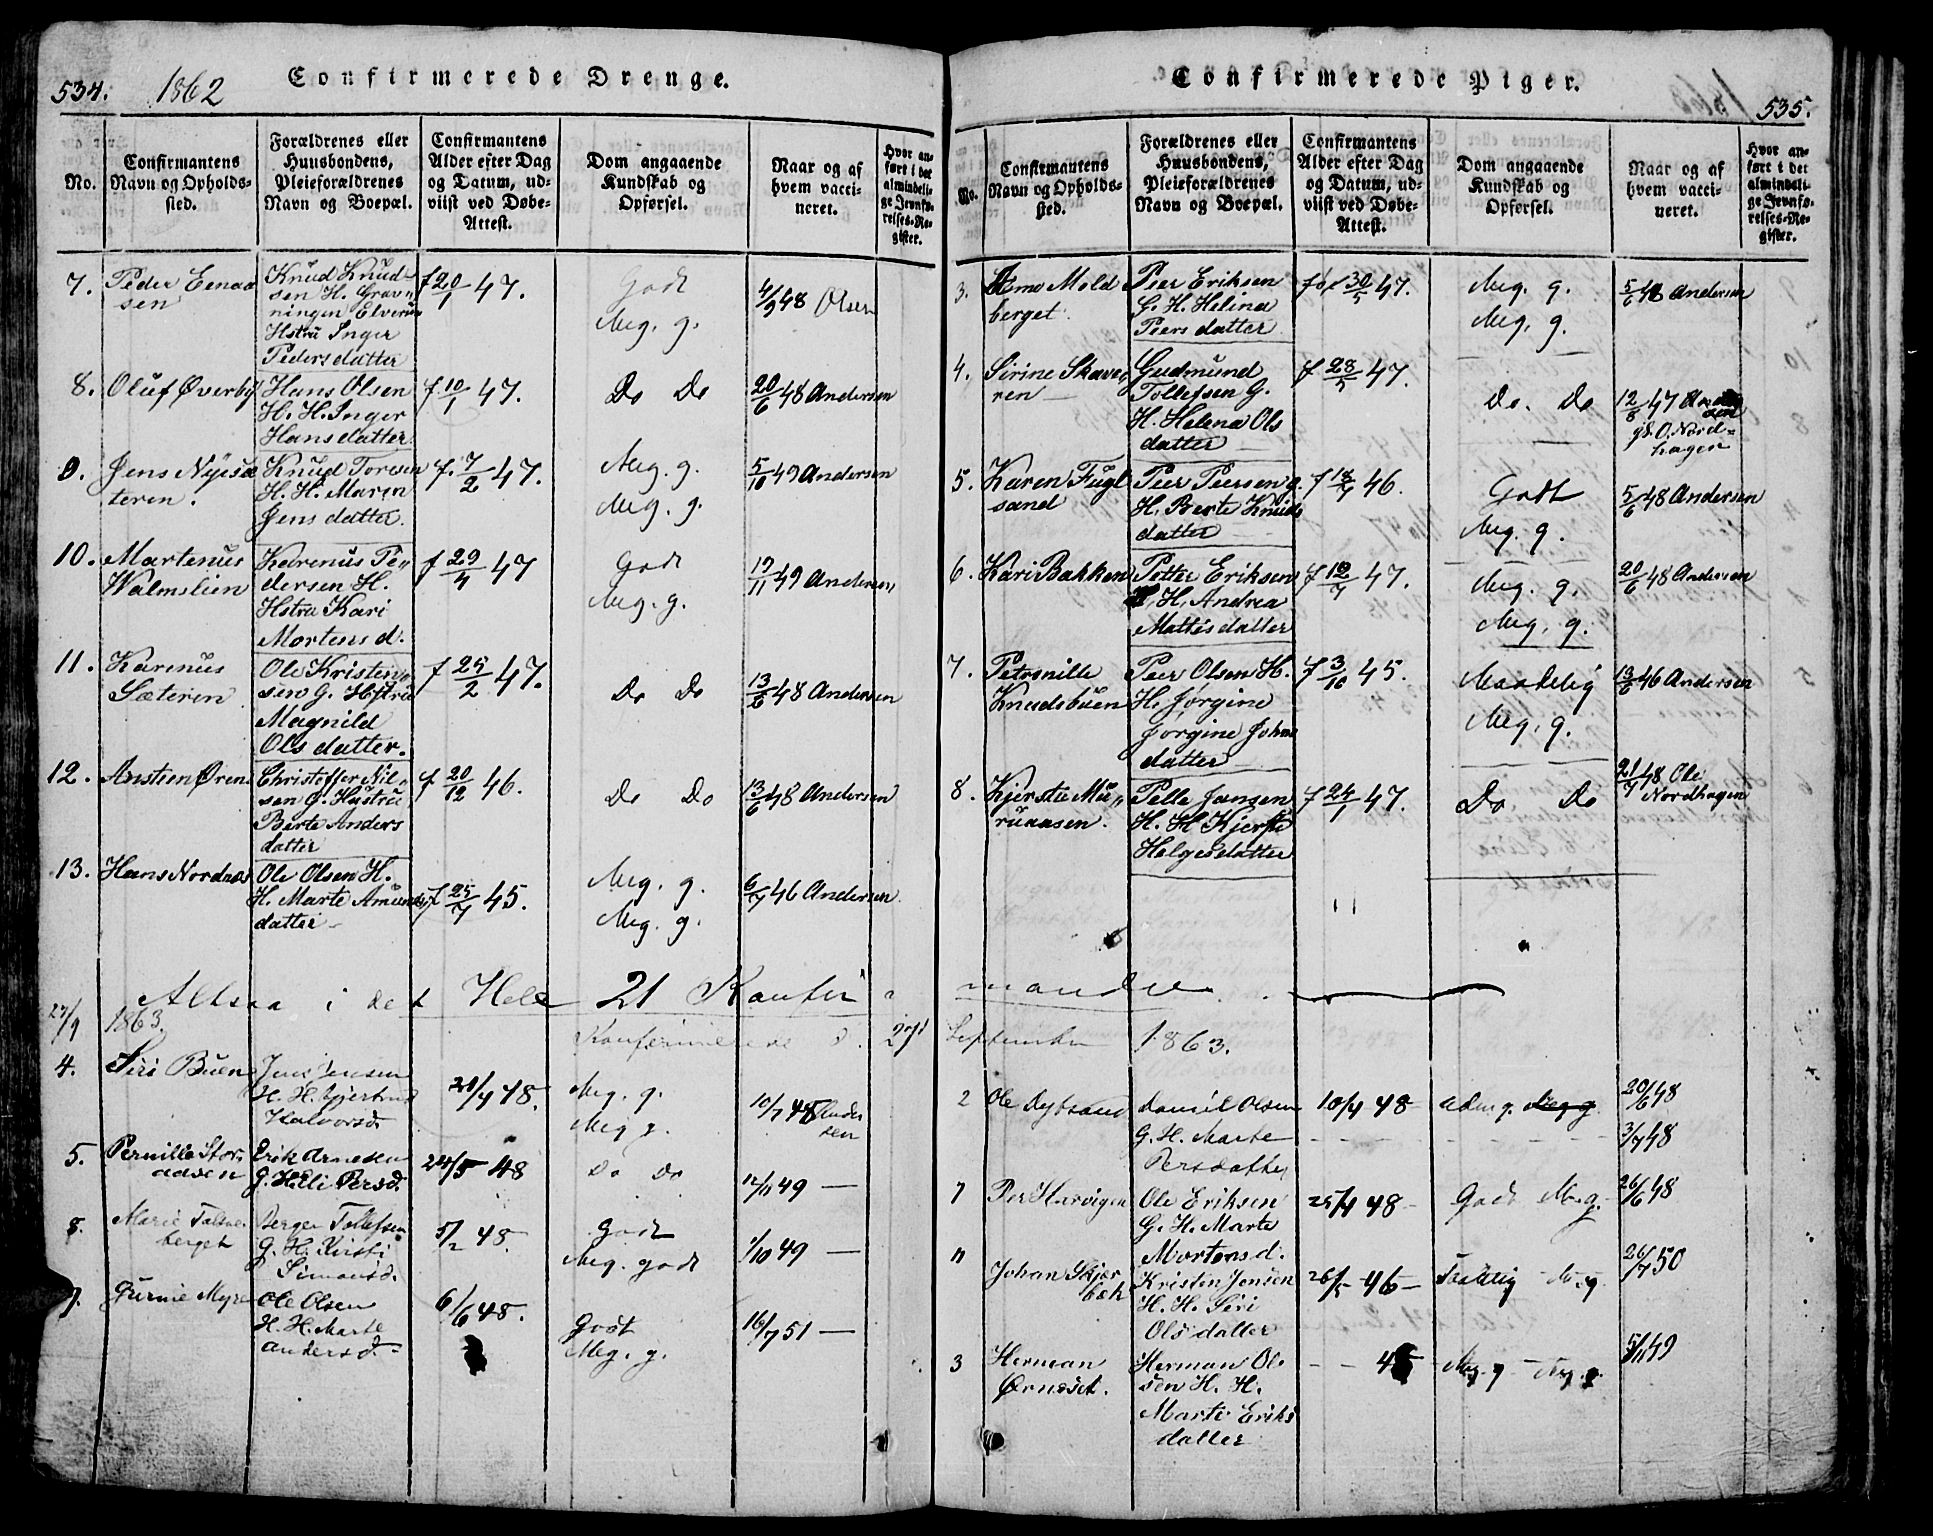 534.
1862
Confirmerede Drenge.
No.
Confirmantens
Navn og Opholds-
sted.
Forældrenes eller
Huusbondens,
Pleieforældrenes
Navn og Boepæl.
Confirmantens
Alder efter Dag
og Datum, ud-
viist ved Døbe-
Attest.
Dom angaaende
Kundskab og
Opførsel.
Naar og af
hvem vacci-
neret.
Hvor an-
ført i det
almindeli-
ge Jevnfø-
relses-Re-
gister.
7. Peder
sen
Knud Knud-
sen H. Grav-
ningen Elverum
Hstru Inger
Pedersdatter
f 20/1 47.
Godt
Meg. g.
4/9 48 Olsen
8. Oluf Øverby
Hans Olsen
H. H. Inger
Hansdatter
f 10/1 47.
Do Do
20/6 48 Andersen
9. Jens Nysæ
teren.
Knud Toresen
H. H. Maren
Jensdatter.
f. 7/2 47.
Meg. g.
Meg. g.
5/10 49 Andersen
10. Martenus
Malmslien
Karenus Pe-
dersen H.
Hstru Kari
Mortensd.
f 29/4 47
Godt
Meg. g.
19/11 49 Andersen
11. Karenus
Sæteren
Ole Kristen-
sen G. Hstru
Magnild
Olsdatter.
f 25/2 47.
Do Do
13/6 48 Andersen
12. Anstien Ørens
Christoffer Nil-
sen G. Hustru
Berte Anders
datter
f 20/12 46.
Do Do
13/6 48 Andersen
13. Hans Nordnæs
Ole Olsen H.
H. Marte Amunds
datter
f 25/7 45.
Meg. g.
Meg. g.
6/7 46 Andersen.
Altsaa i det Hele 21 Konfir
mander.
27/9 1863.
Konfirmerede d. 27d
September 1863.
4. Siri Buen
Jens Jensen
H. H. Kjerstine
Halvorsd.
21/4 48.
Meg. g.
Meg g.
10/7 48 Ander
sen
5. Pernille Stor
aasen
Erik Arnesen
G. H. Eli Persd.
24/5 48
Do Do
12/11 49 —
8. Marie
berget
Berger Tollefsen
G. H. Kirsti
Simonsd.
5/2 48.
Godt
Meg. godt
1/10 49 —
9. Gurine Myre
Ole Olsen
H. H. Marte
Andersd.
6/6 48.
Godt
Meg. g.
16/7 51 —
Confirmerede Piger.
535.
No.
Confirmantens
Navn og Opholds-
sted.
Forældrenes eller
Huusbondens,
Pleieforældrenes
Navn og Boepæl.
Confirmantens
Alder efter Dag
og Datum, ud-
viist ved Døbe-
Attest.
Dom angaaende
Kundskab og
Opførsel.
Naar og af
hvem vacci-
neret.
Hvor an-
ført i det
almindeli-
ge Jevnfø-
relses-Re-
gister.
3. Mold
berget.
Peer Eriksen
G. H. Helina
Peersdatter
30/5 47.
Meg. g.
Meg. g.
5/6 48 Andersen
4. Sirine Skaver
ren
Gudmund
Tollefsen G.
H. Helena Ols
datter
f 28/5 47.
Do. Do
12/8 47 Ander
sen
O. Nord-
hagen
5. Karen Fugl
sand
Peer Peersen g.
H. Berte Knuds
datter
f 18/7 46.
Godt
Meg. g.
5/6 48 Andersen
6. Kari Bakken
Petter Eriksen
H. Andrea
Mattisdatter
f 12/7 47.
Meg. g.
Meg. g.
20/6 48 Andersen
7. Petronille
Knudsbuen
Peer Olsen H.
H. Jørgine
Jørgine Johns
datter
f 3/10 45.
Maadelig
Meg. g.
13/6 46 Andersen
8. Kjerstie Mu-
ruaasen.
Pelle Jansen
H. H Kjersti
Helgesdatter
f 24/1 47.
Do Do
21/7 48 Ole
Nordhagen
2 Ole Dybsand
Daniel Olsen
G. H. Marte
Persdatter
10/4 48 -
20/6 48
3/7 48
7 Per Harvigen
Ole Eriksen
G. H. Marte
Mortensd.
25/4 48 -
Godt M. g.
26/6 48
11
Johan Skjær
bæk
Kristen Jensen
H. H. Siri
Olsdatter
26/5 46 -
Taalelig M. g.
26/7 50
3 Herman
Ørnæset.
Herman Ol-
sen H. H.
Marte Eriks
datter
Meg. g - Meg. g
5/11 49